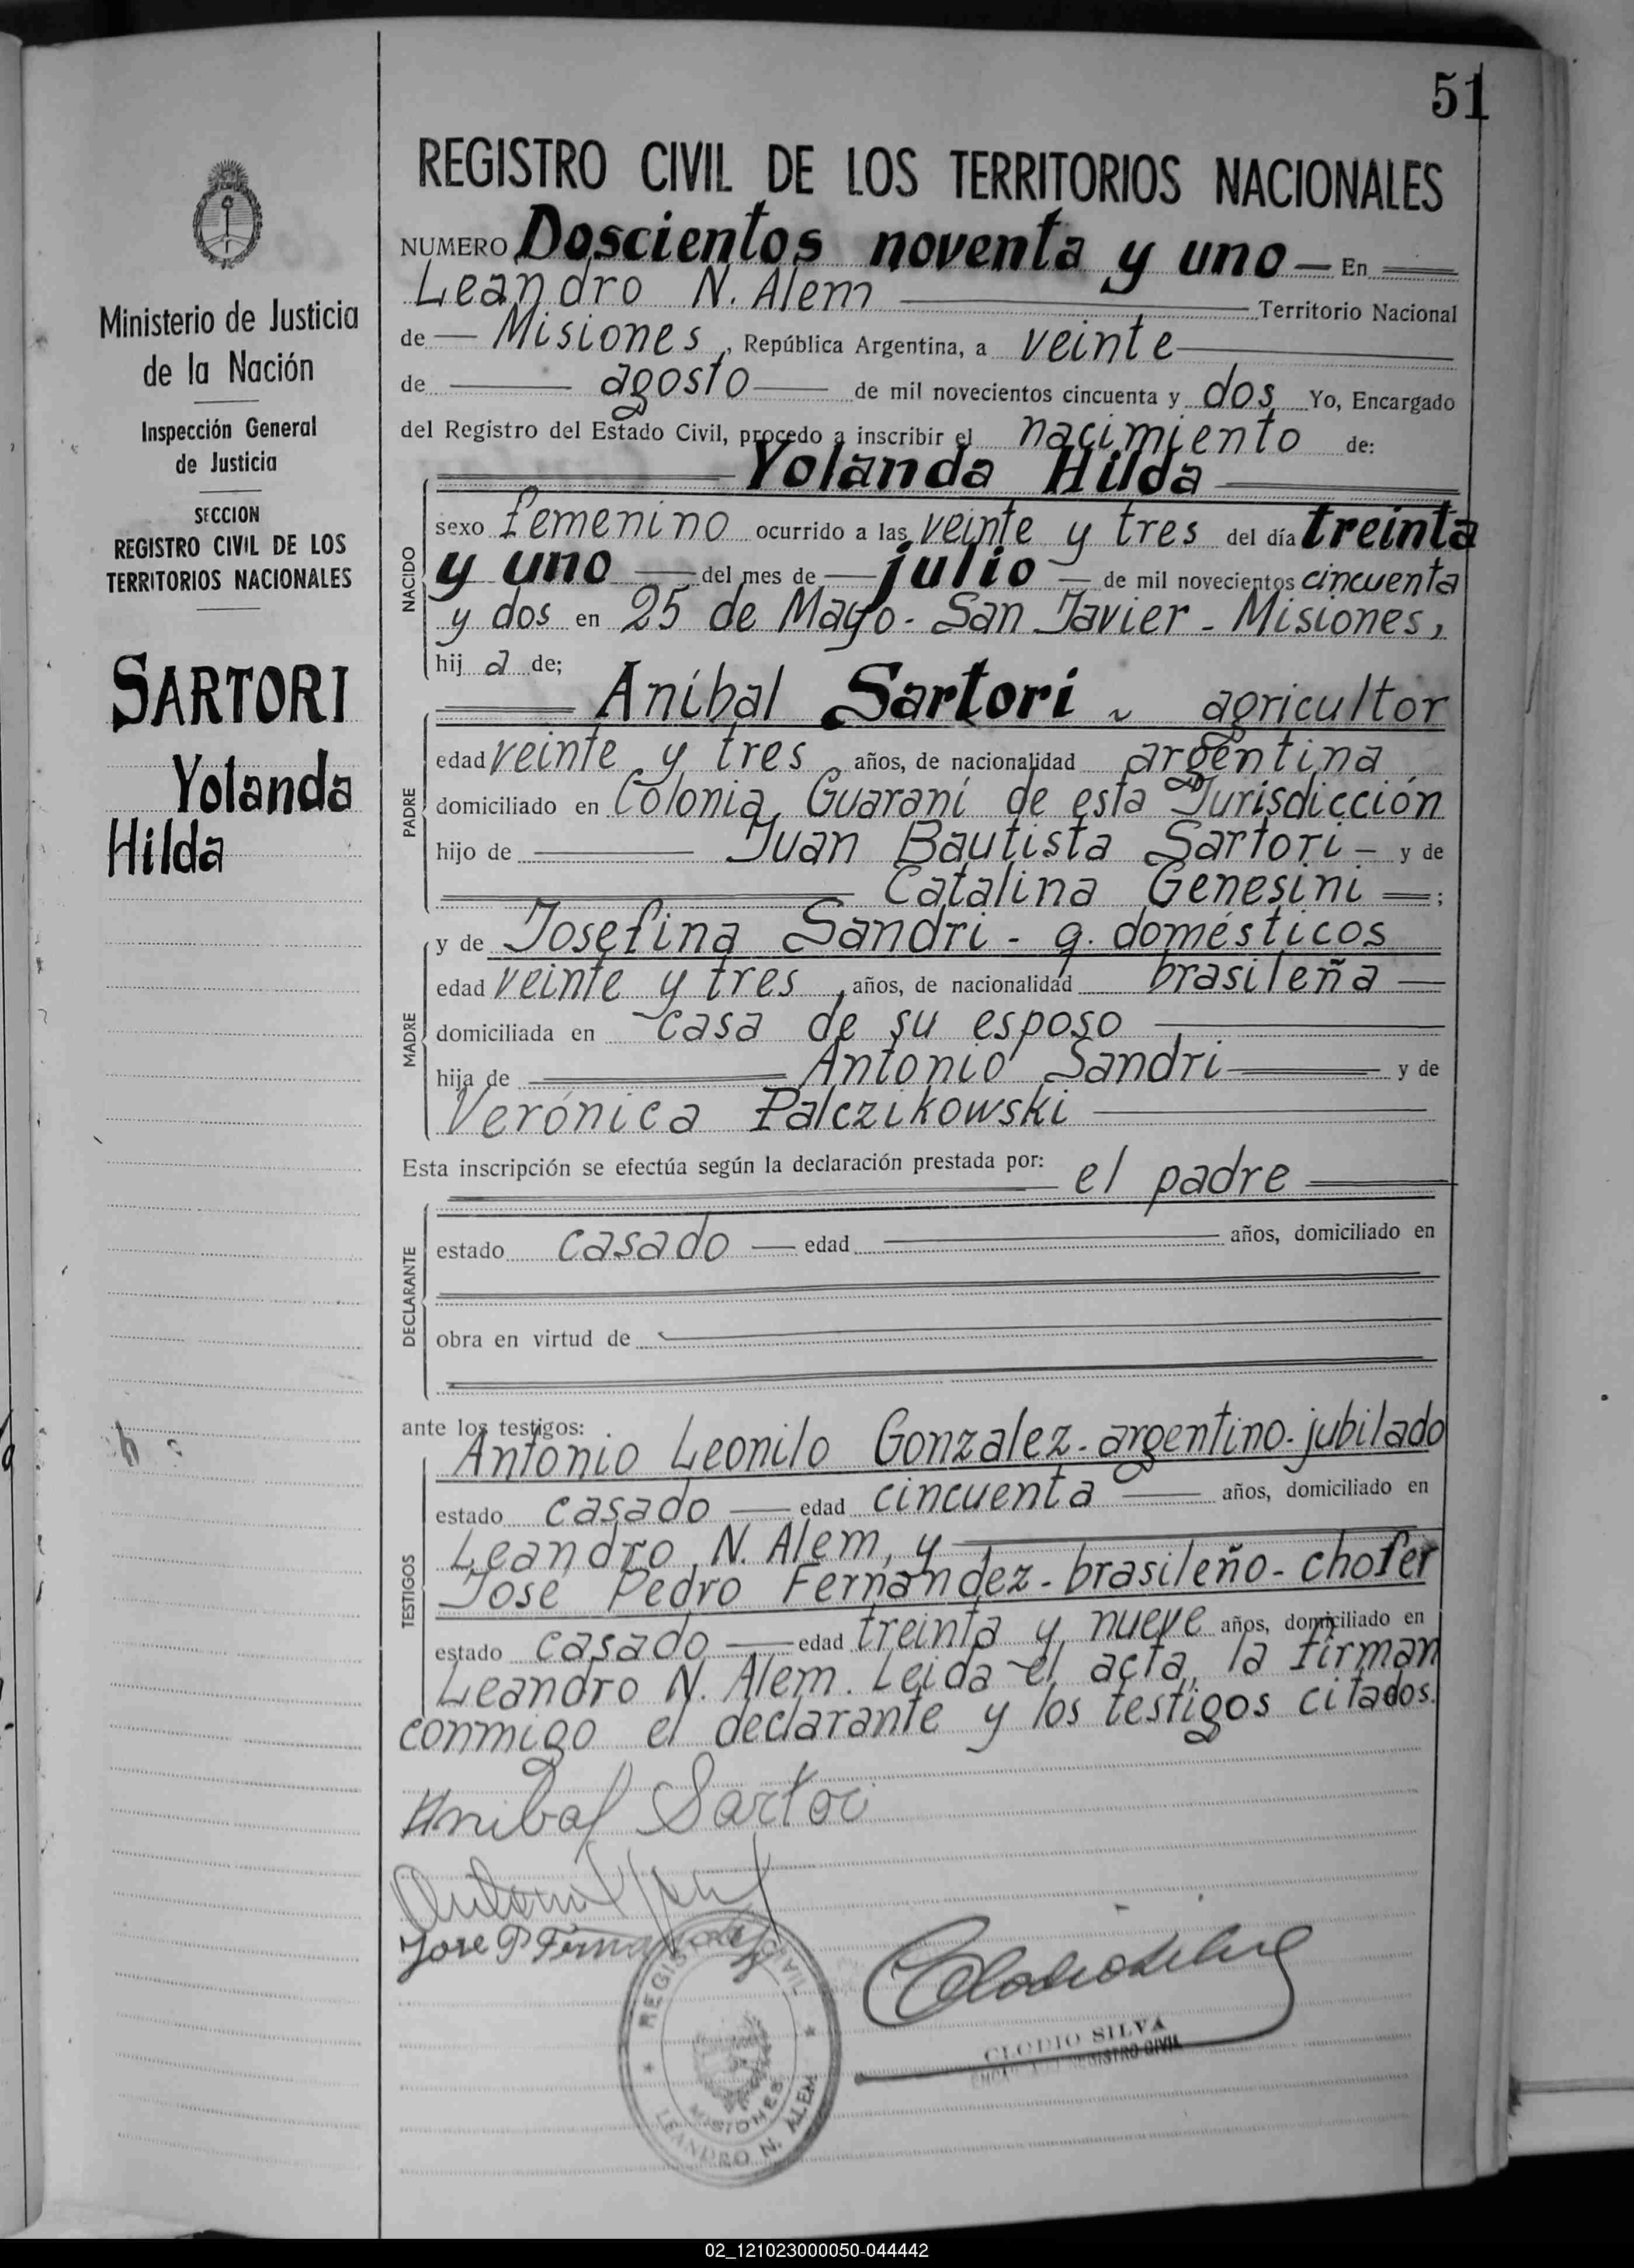 51
Ministerio de Justicia
de la Nación
Inspección General
de Justicia
SECCION
REGISTRO CIVIL DE LOS
TERRITORIOS NACIONALES
SARTORI
Yolanda
Hilda
REGISTRO CIVIL DE LOS TERRITORIOS NACIONALES
NUMERO Doscientos noventa y uno — En
Leandro N. Alem Territorio Nacional
de Misiones, República Argentina, a veinte
de agosto de mil novecientos cincuenta y dos Yo, Encargado
del Registro del Estado Civil, procedo a inscribir el nacimiento de:
Yolanda Hilda
NACIDO
sexo femenino ocurrido a las veinte y tres del día treinta
y uno del mes de julio de mil novecientos cincuenta
y dos en 25 de Mayo - San Javier - Misiones,
hij a de;
Aníbal Sartori ~ agricultor
PADRE
edad veinte y tres años, de nacionalidad argentina
domiciliado en Colonia Guaraní de esta Jurisdicción
hijo de Juan Bautista Sartori - y de
Catalina Genesini ;
y de Josefina Sandri - q. domésticos
MADRE
edad veinte y tres, años, de nacionalidad brasileña
domiciliada en casa de su esposo
hija de Antonio Sandri y de
Verónica Palczikowski
Esta inscripción se efectúa según la declaración prestada por: el padre
DECLARANTE
estado casado — edad años, domiciliado en
obra en virtud de
ante los testigos:
Antonio Leonilo Gonzalez - argentino - jubilado
TESTIGOS
estado casado — edad cincuenta años, domiciliado en
Leandro N. Alem, y
José Pedro Fernández - brasileño - chofer
estado casado — edad treinta y nueve años, domiciliado en
Leandro N. Alem. Leida el acta, la firman
conmigo el declarante y los testigos citados.
Anibal Sartori
Jose P Fernandez
REGISTRO CIVIL
MISIONES
LEANDRO N. ALEM
CLODIO SILVA
REGISTRO CIVIL
02_121023000050-044442